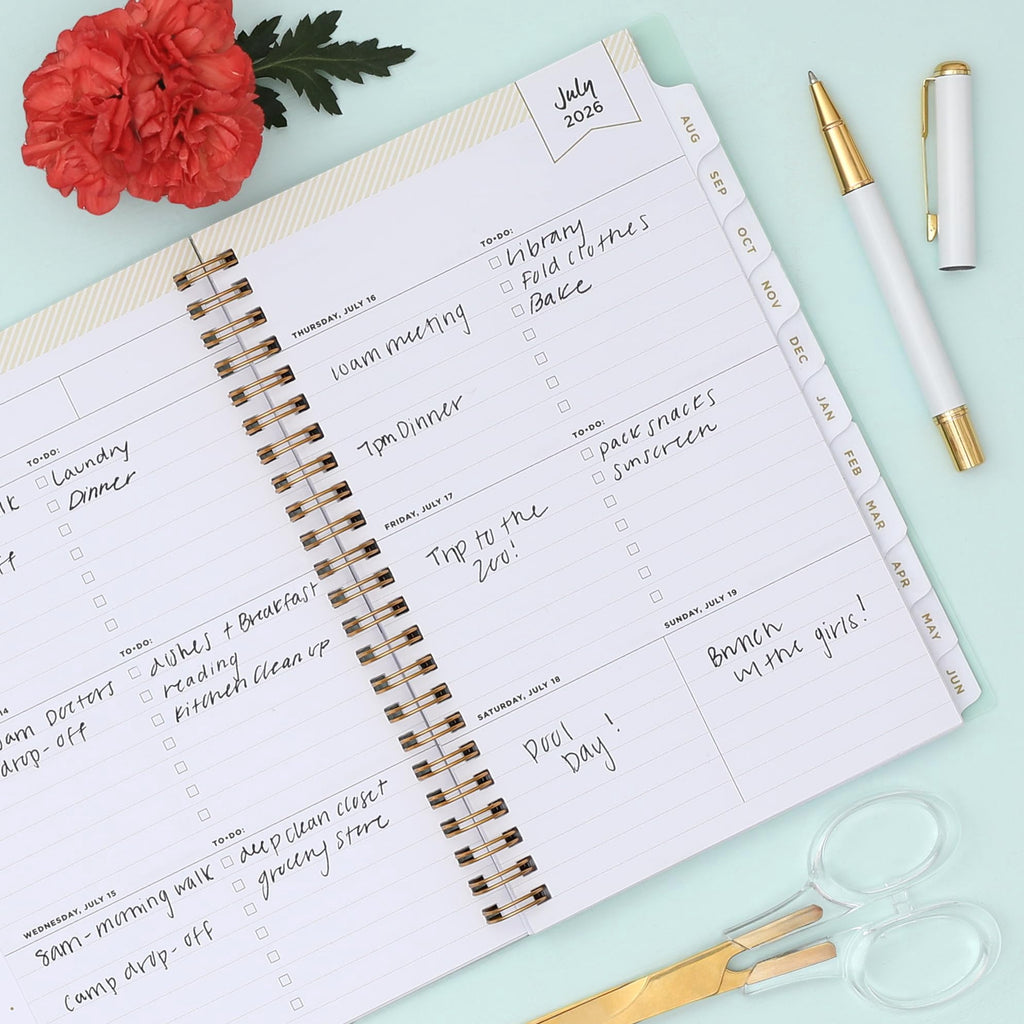 TO•DO:
Laundry
Dinner
TO•DO:
dishes + Breakfast
reading
kitchen clean up
14
Doctors
drop-off
TO•DO:
deep clean closet
grocery store
WEDNESDAY, JULY 15
8am - morning walk
camp drop-off
July
2026
TO•DO:
Library
Fold clothes
Bake
THURSDAY, JULY 16
10am meeting
7pm Dinner
TO•DO:
pack snacks
sunscreen
FRIDAY, JULY 17
Trip to the
zoo!
SATURDAY, JULY 18
Pool
Day!
SUNDAY, JULY 19
Brunch
w/ the girls!
AUG
SEP
OCT
NOV
DEC
JAN
FEB
MAR
APR
MAY
JUN